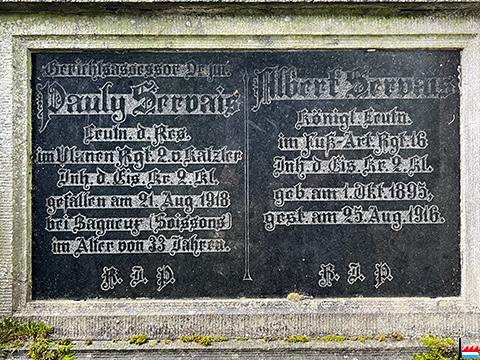 Gerichtsassessor Dr. jur.
Pauly Servais
Leutn. d. Res.
im Ulanen Rgt. 2 v. Katzler
Inh. d. Eis. Kr. 2. Kl.
gefallen am 21. Aug. 1918
bei Bagneux (Soissons)
im Alter von 33 Jahren.
R. I. P.
Albert Servais
Königl. Leutn.
im Fuß-Art. Rgt. 16
Inh. d. Eis. Kr. 2. Kl.
geb. am 1. Okt. 1895,
gest. am 25. Aug. 1916.
R. I. P.